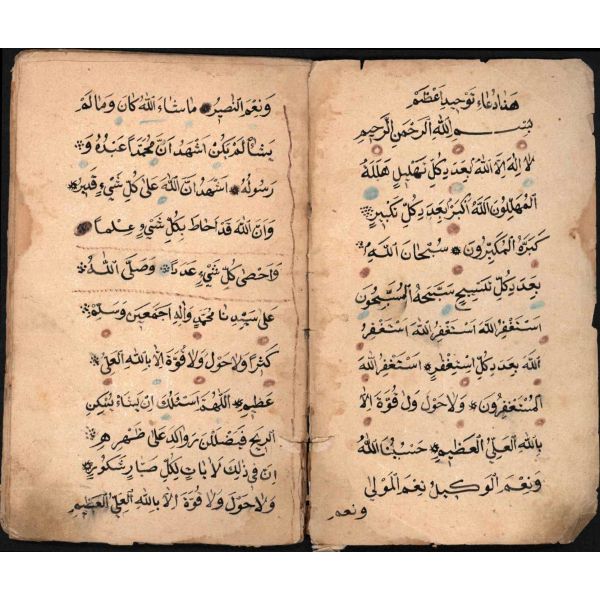 هذا دعاء توحيد اعظم
بسم الله الرحمن الرحيم
لا اله الا الله بعدد كل تهليل هلله
المهللون الله اكبر بعدد كل تكبير
كبره المكبرون سبحان الله
بعدد كل تسبيح سبحه المسبحون
استغفر الله استغفر الله استغفر
الله بعدد كل استغفر استغفر الله
المستغفرون ولا حول ول قوة الا
بالله العلي العظيم حسبنا الله
ونعم الوكيل نعم المولى
ونعم
ونعم النصير ما شاء الله كان وما لم
يشا لم يكن اشهد ان محمدا عبده و
رسوله اشهد ان الله على كل شيء قدير
وان الله قد احاط بكل شيء علما
واحصى كل شيء عددا وصلى الله
على سيدنا محمد واله اجمعين وسلم
كثرا ولا حول ولا قوة الا بالله العلي
عظيم اللهم اسئلك ان يشاء يسكن
الريح فيضللن رواكد على ظهره
ان في ذلك لايات لكل صبار شكور
ولا حول ولا قوة الا بالله العلي العظيم